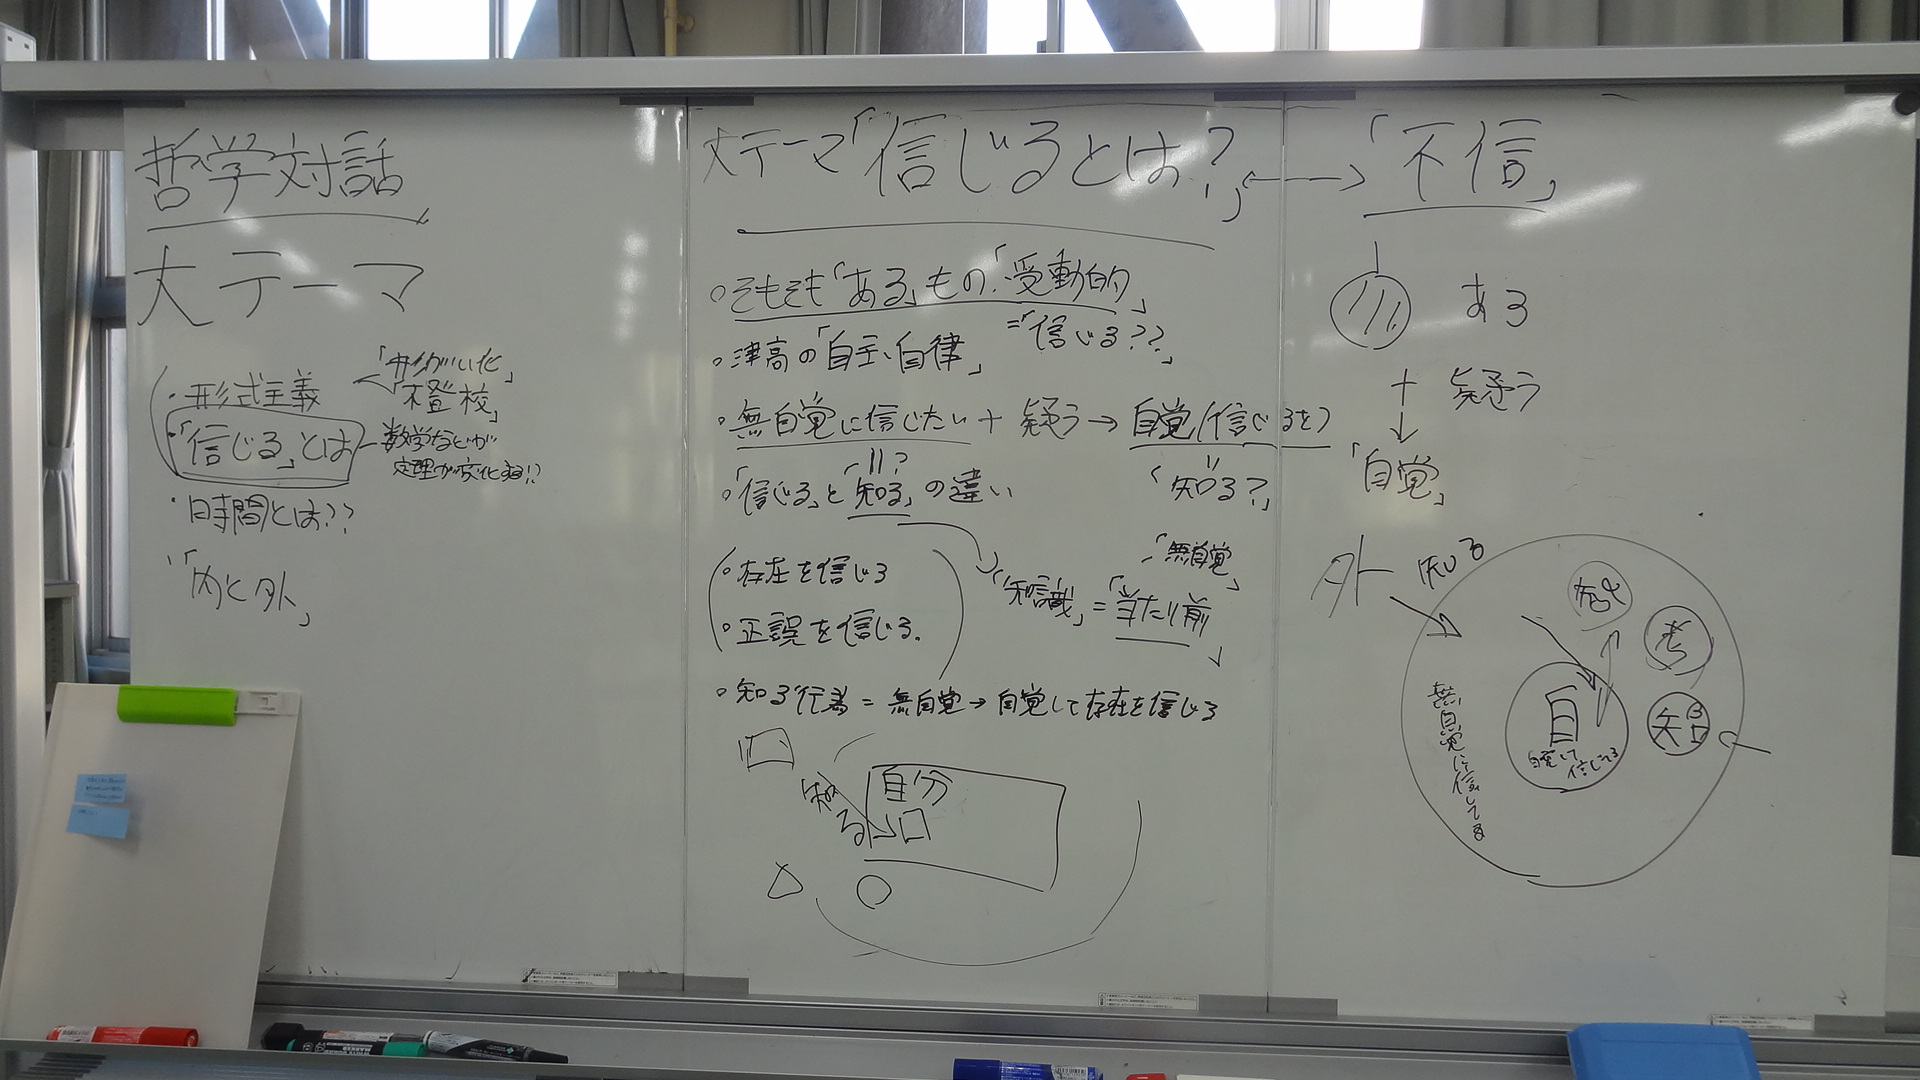 哲学対話
大テーマ
・形式主義
「形がい化」
「不登校」
・「信じる」とは
数学などが
定理が変化する!?
・時間とは??
・「内と外」
大テーマ「信じるとは?」←→「不信」
○そもそも「ある」もの.「受動的」
=「信じる??」
○津高の「自主、自律」
・無自覚に信じたい+疑う→自覚(信じるを)
〃?
〃
「知る?」
○「信じる」と「知る」の違い
「無自覚」
「知識」=「当たり前」
○存在を信じる
○正誤を信じる.
○知る行為=無自覚→自覚して存在を信じる
知る
自分
ある
+ 疑う
「自覚」
外
知る
考
知る
自
自覚して信じてる
無自覚に信じてる